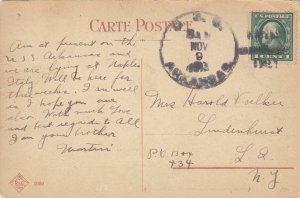 CARTE POSTALE
Am at present on the
U S S Arkansas and
we are lying at Naples
Italy. Will be here for
three weeks. I am well
as I hope you are
also. With much love
and best regards to All
I am your brother
Martin
U. S. S.
NOV
9
ARKANSAS
1 CENT 1
Mrs Harold Volker
Lindenhurst
P.O. Box
434
L. I.
N.Y